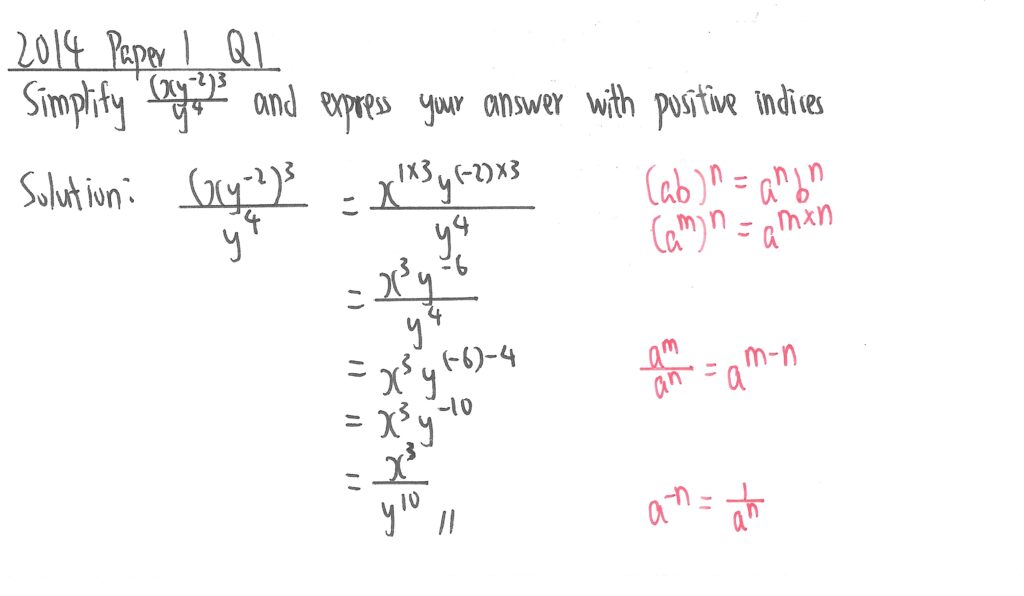 2014 Paper 1 Q1
Simplify (xy⁻²)³/y⁴ and express your answer with positive indices
Solution: (xy⁻²)³/y⁴ = x¹ˣ³y⁽⁻²⁾ˣ³/y⁴ (ab)ⁿ = aⁿbⁿ
(aᵐ)ⁿ = aᵐˣⁿ
= x³y⁻⁶/y⁴
= x³y⁽⁻⁶⁾⁻⁴ aᵐ/aⁿ = aᵐ⁻ⁿ
= x³y⁻¹⁰
= x³/y¹⁰ // a⁻ⁿ = 1/aⁿ